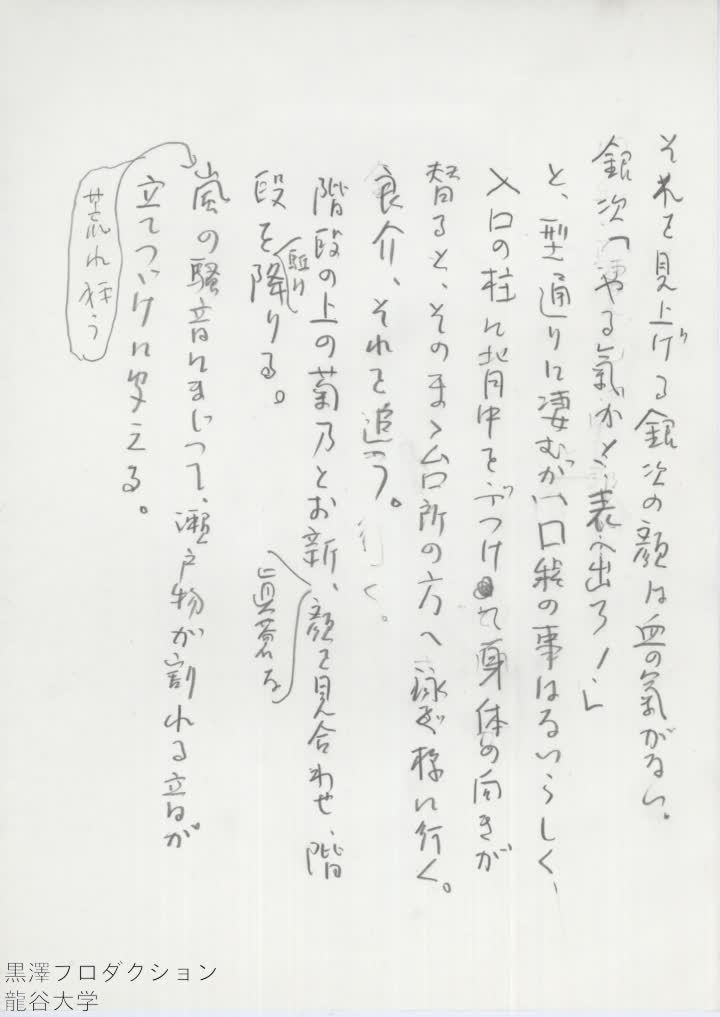 それを見上げる銀次の顔は血の氣がない。
銀次「やる氣かと、表へ出ろ！」
と、型通りに凄むが、口程の事はないらしく、
入口の柱に背中をぶつけて身体の向きが
替ると、そのまゝ台所の方へ泳ぐ様に行く。
良介、それを追う。
行く。
階段の上の菊乃とお新、顔を見合わせ、階
眞蒼な
段を降りる。
駈け
嵐の騒音にまじって、瀬戸物が割れる音が
立てつゞけに聞える。
荒れ狂う
黒澤プロダクション
龍谷大学